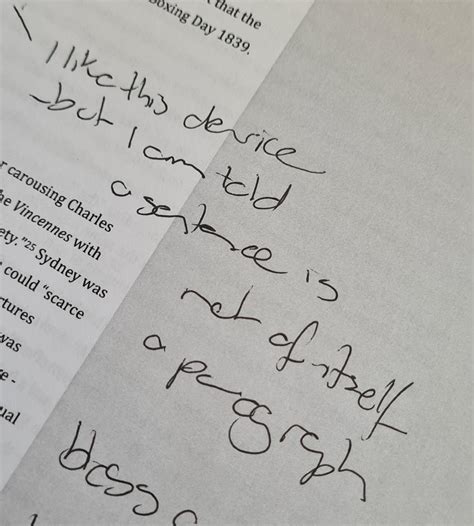 that the
Boxing Day 1839.
I like this device
-but I am told
a sentence is
not of itself
a paragraph
carousing Charles
Vincennes with
ety."²⁵ Sydney was
could "scarce
tures
was
e -
ual